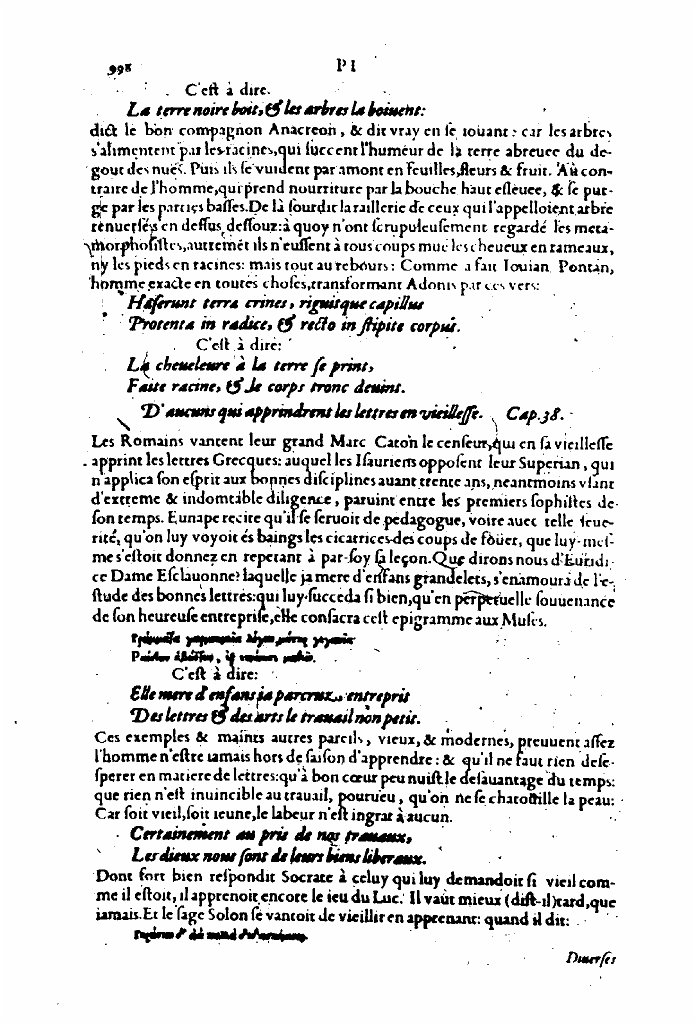 998
P I
C'eſt à dire.
La terre noire boit, & les arbres la boiuent:
dict le bon compagnon Anacreon, & dit vray en ſe iouant: car les arbres
s'alimentent par les racines, qui ſuccent l'humeur de la terre abreuee du de-
gout des nues. Puis ils ſe vuident par amont en feuilles, fleurs & fruit. Au con-
traire de l'homme, qui prend nourriture par la bouche haut eſleuee, & ſe pur-
ge par les parties baſſes. De là ſourdit la raillerie de ceux qui l'appelloient arbre
renuerſé, en deſſus deſſouz: à quoy n'ont ſcrupuleuſement regardé les meta-
morphoſiſtes, autremēt ils n'euſſent à tous coups mué les cheueux en rameaux,
ny les pieds en racines: mais tout au rebours: Comme a fait Iouian Pontan,
homme exacte en toutes choſes, transformant Adonis par ces vers:
Hæſerunt terra crines, riguitque capillus
Protenta in radice, & recto in ſtipite corpus.
C'eſt à dire:
La cheueleure à la terre ſe print,
Faite racine, & le corps tronc deuint.
D'aucuns qui apprindrent les lettres en vieilleſſe. Cap. 38.
Les Romains vantent leur grand Marc Caton le cenſeur, qui en ſa vieilleſſe
apprint les lettres Grecques: auquel les Iſauriens oppoſent leur Superian, qui
n'applica ſon eſprit aux bonnes diſciplines auant trente ans, neantmoins vſant
d'extreme & indomtable diligence, paruint entre les premiers ſophiſtes de
ſon temps. Eunape recite qu'il ſe ſeruoit de pedagogue, voire auec telle ſeue-
rité, qu'on luy voyoit és baings les cicatrices des coups de foüet, que luy-meſ-
me s'eſtoit donnez en repetant à par-ſoy ſa leçon. Que dirons nous d'Euridi-
ce Dame Eſclauonne? laquelle ja mere d'enfans grandelets, s'enamoura de l'e-
ſtude des bonnes lettres: qui luy ſucceda ſi bien, qu'en perpetuelle ſouuenance
de ſon heureuſe entrepriſe, elle conſacra ceſt epigramme aux Muſes.
C'eſt à dire:
Elle mere d'enfans ja parcreuz entreprit
Des lettres & des arts le trauail non petit.
Ces exemples & maints autres pareils, vieux, & modernes, preuuent aſſez
l'homme n'eſtre iamais hors de ſaiſon d'apprendre: & qu'il ne faut rien deſe-
ſperer en matiere de lettres: qu'à bon cœur peu nuiſt le deſauantage du temps:
que rien n'eſt inuincible au trauail, pourueu, qu'on ne ſe chatoüille la peau:
Car ſoit vieil, ſoit ieune, le labeur n'eſt ingrat à aucun.
Certainement au pris de nos trauaux,
Les dieux nous ſont de leurs biens liberaux.
Dont fort bien reſpondit Socrate à celuy qui luy demandoit ſi vieil com-
me il eſtoit, il apprenoit encore le ieu du Luc. Il vaut mieux (diſt-il) tard, que
iamais. Et le ſage Solon ſe vantoit de vieillir en apprenant: quand il dit:
Diuerſes